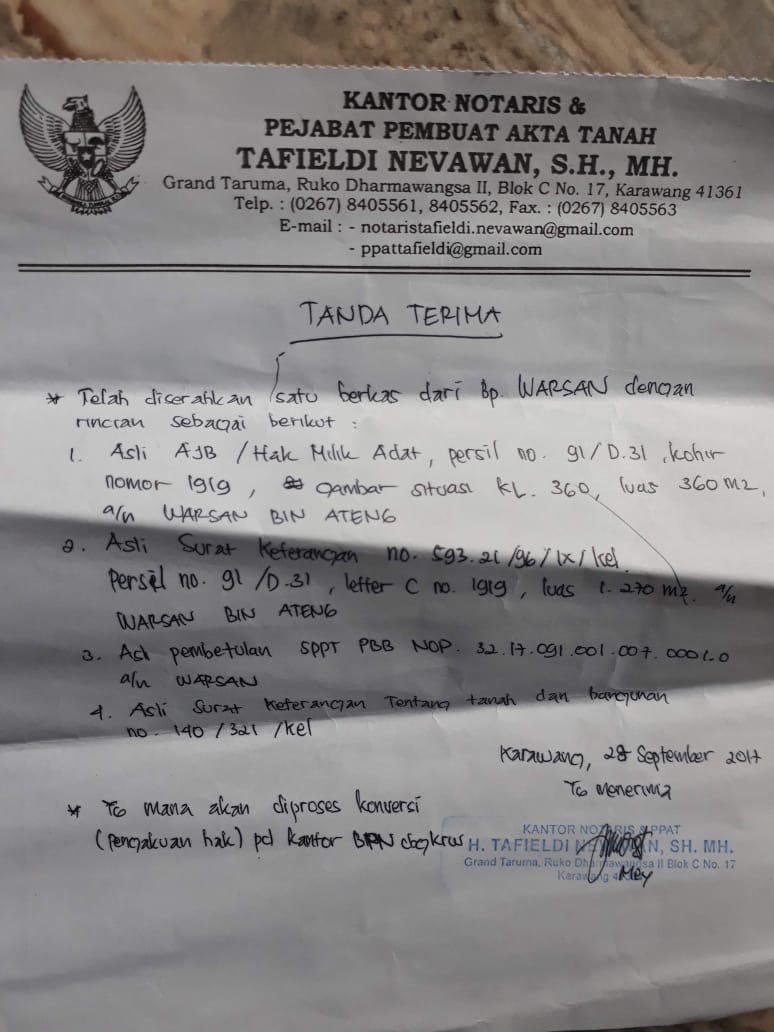 KANTOR NOTARIS &
PEJABAT PEMBUAT AKTA TANAH
TAFIELDI NEVAWAN, S.H., MH.
Grand Taruma, Ruko Dharmawangsa II, Blok C No. 17, Karawang 41361
Telp. : (0267) 8405561, 8405562, Fax. : (0267) 8405563
E-mail : - notaristafieldi.nevawan@gmail.com
- ppattafieldi@gmail.com
TANDA TERIMA
* Telah diserahkan satu berkas dari Bp. WARSAN dengan
rincian sebagai berikut :
1. Asli AJB / Hak Milik Adat, persil no. 91/D.31, kohir
nomor 1919, gambar situasi KL. 360, luas 360 m2,
a/n WARSAN BIN ATENG
2. Asli Surat Keterangan no. 593.21/96/IX/Kel
Persil no. 91/D.31, letter C no. 1919, luas 1.270 m2. a/n
WARSAN BIN ATENG
3. Asli pembetulan SPPT PBB NOP. 32.17.091.001.007.0001.0
a/n WARSAN
4. Asli Surat Keterangan Tentang tanah dan bangunan
no. 140/321/Kel
Karawang, 28 September 2017
Yg Menerima
* Yg mana akan diproses konversi
(Pengakuan hak) pd kantor BPN
KANTOR NOTARIS & PPAT
H. TAFIELDI NEVAWAN, SH. MH.
Grand Taruma, Ruko Dharmawangsa II Blok C No. 17
Karawang
Mey